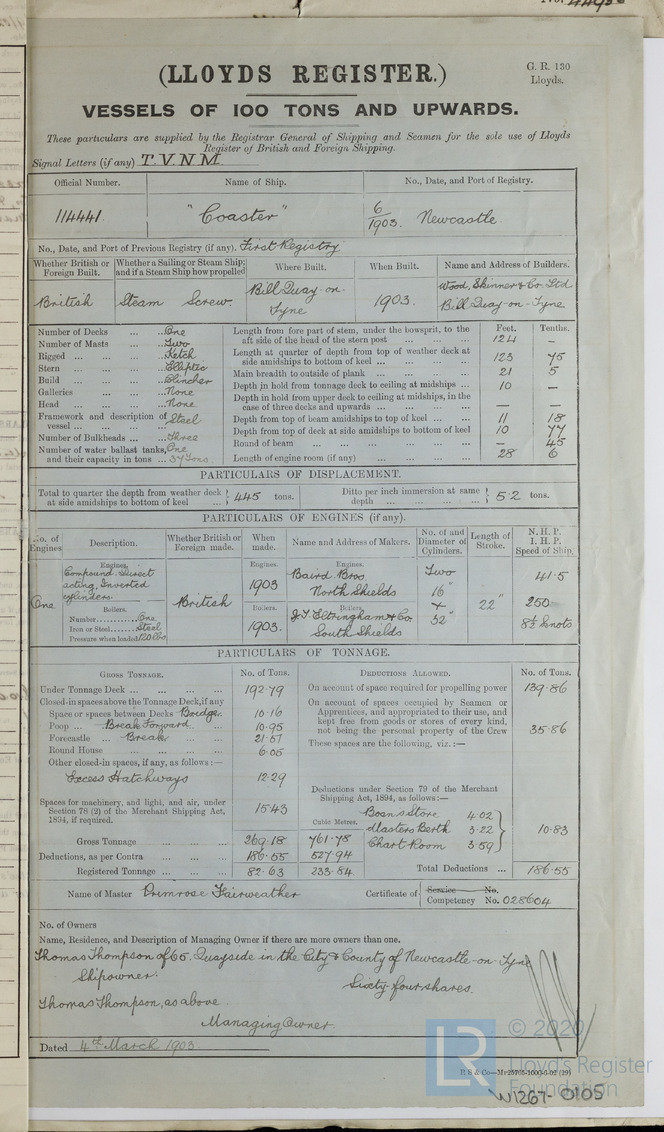 (LLOYDS REGISTER.)
G. R. 130
Lloyds.
VESSELS OF 100 TONS AND UPWARDS.
These particulars are supplied by the Registrar General of Shipping and Seamen for the sole use of Lloyds
Register of British and Foreign Shipping.
Signal Letters (if any) T.V.N.M
Official Number. Name of Ship. No., Date, and Port of Registry.
114441. "Coaster" 6/1903. Newcastle.
No., Date, and Port of Previous Registry (if any). First Registry
Whether British or Foreign Built. Whether a Sailing or Steam Ship; and if a Steam Ship how propelled Where Built. When Built. Name and Address of Builders.
British Steam Screw. Bill Quay-on-Tyne 1903. Wood, Skinner & Co. Ltd Bill Quay-on-Tyne
Number of Decks ... One
Number of Masts ... Two
Rigged ... Ketch
Stern ... Elliptic
Build ... Clincher
Galleries ... None
Head ... None
Framework and description of vessel ... Steel
Number of Bulkheads ... Three
Number of water ballast tanks, One
and their capacity in tons ... 37 Tons
Feet. Tenths.
Length from fore part of stem, under the bowsprit, to the
aft side of the head of the stern post ... 124 —
Length at quarter of depth from top of weather deck at
side amidships to bottom of keel ... 123 75
Main breadth to outside of plank ... 21 5
Depth in hold from tonnage deck to ceiling at midships ... 10 —
Depth in hold from upper deck to ceiling at midships, in the
case of three decks and upwards ... — —
Depth from top of beam amidships to top of keel ... 11 18
Depth from top of deck at side amidships to bottom of keel 10 77
Round of beam ... — 45
Length of engine room (if any) ... 28 6
PARTICULARS OF DISPLACEMENT.
Total to quarter the depth from weather deck
at side amidships to bottom of keel ... 445 tons.
Ditto per inch immersion at same
depth ... 5·2 tons.
PARTICULARS OF ENGINES (if any).
No. of Engines. Description. Whether British or Foreign made. When made. Name and Address of Makers. No. of and Diameter of Cylinders. Length of Stroke. N. H. P. I. H. P. Speed of Ship.
One
Engines.
Compound. Direct
acting, Inverted
cylinders.
Boilers.
Number ... One
Iron or Steel ... Steel
Pressure when loaded 120 lbs
British
Engines.
1903
Boilers.
1903.
Engines.
Baird Bros
North Shields
Boilers.
J. T. Eltringham & Co
South Shields
Two
16"
+
32"
22"
41·5
250
8½ knots
PARTICULARS OF TONNAGE.
GROSS TONNAGE. No. of Tons.
Under Tonnage Deck ... 192·79
Closed-in spaces above the Tonnage Deck, if any
Space or spaces between Decks Bridge. 10·16
Poop ... Break Forward ... 10·95
Forecastle ... Break ... 21·57
Round House ... 6·05
Other closed-in spaces, if any, as follows :—
Excess Hatchways 12·29
Spaces for machinery, and light, and air, under
Section 78 (2) of the Merchant Shipping Act,
1894, if required. 15·43
Cubic Metres.
Gross Tonnage ... 269·18 761·78
Deductions, as per Contra ... 186·55 527·94
Registered Tonnage ... 82·63 233·84
DEDUCTIONS ALLOWED. No. of Tons.
On account of space required for propelling power 139·86
On account of spaces occupied by Seamen or
Apprentices, and appropriated to their use, and
kept free from goods or stores of every kind,
not being the personal property of the Crew 35·86
These spaces are the following, viz. :—
Deductions under Section 79 of the Merchant
Shipping Act, 1894, as follows :—
Boan's Store 4·02
Masters Berth 3·22
Chart Room 3·59
10·83
Total Deductions ... 186·55
Name of Master Primrose Fairweather
Certificate of Service No.
Competency No. 028604
No. of Owners
Name, Residence, and Description of Managing Owner if there are more owners than one.
Thomas Thompson of 65. Quayside in the City & County of Newcastle-on-Tyne
Shipowner. Sixty four shares.
Thomas Thompson, as above.
Managing Owner.
Dated 4th March 1903.
LR
© 2020
Lloyd's Register
Foundation
W1267-0105